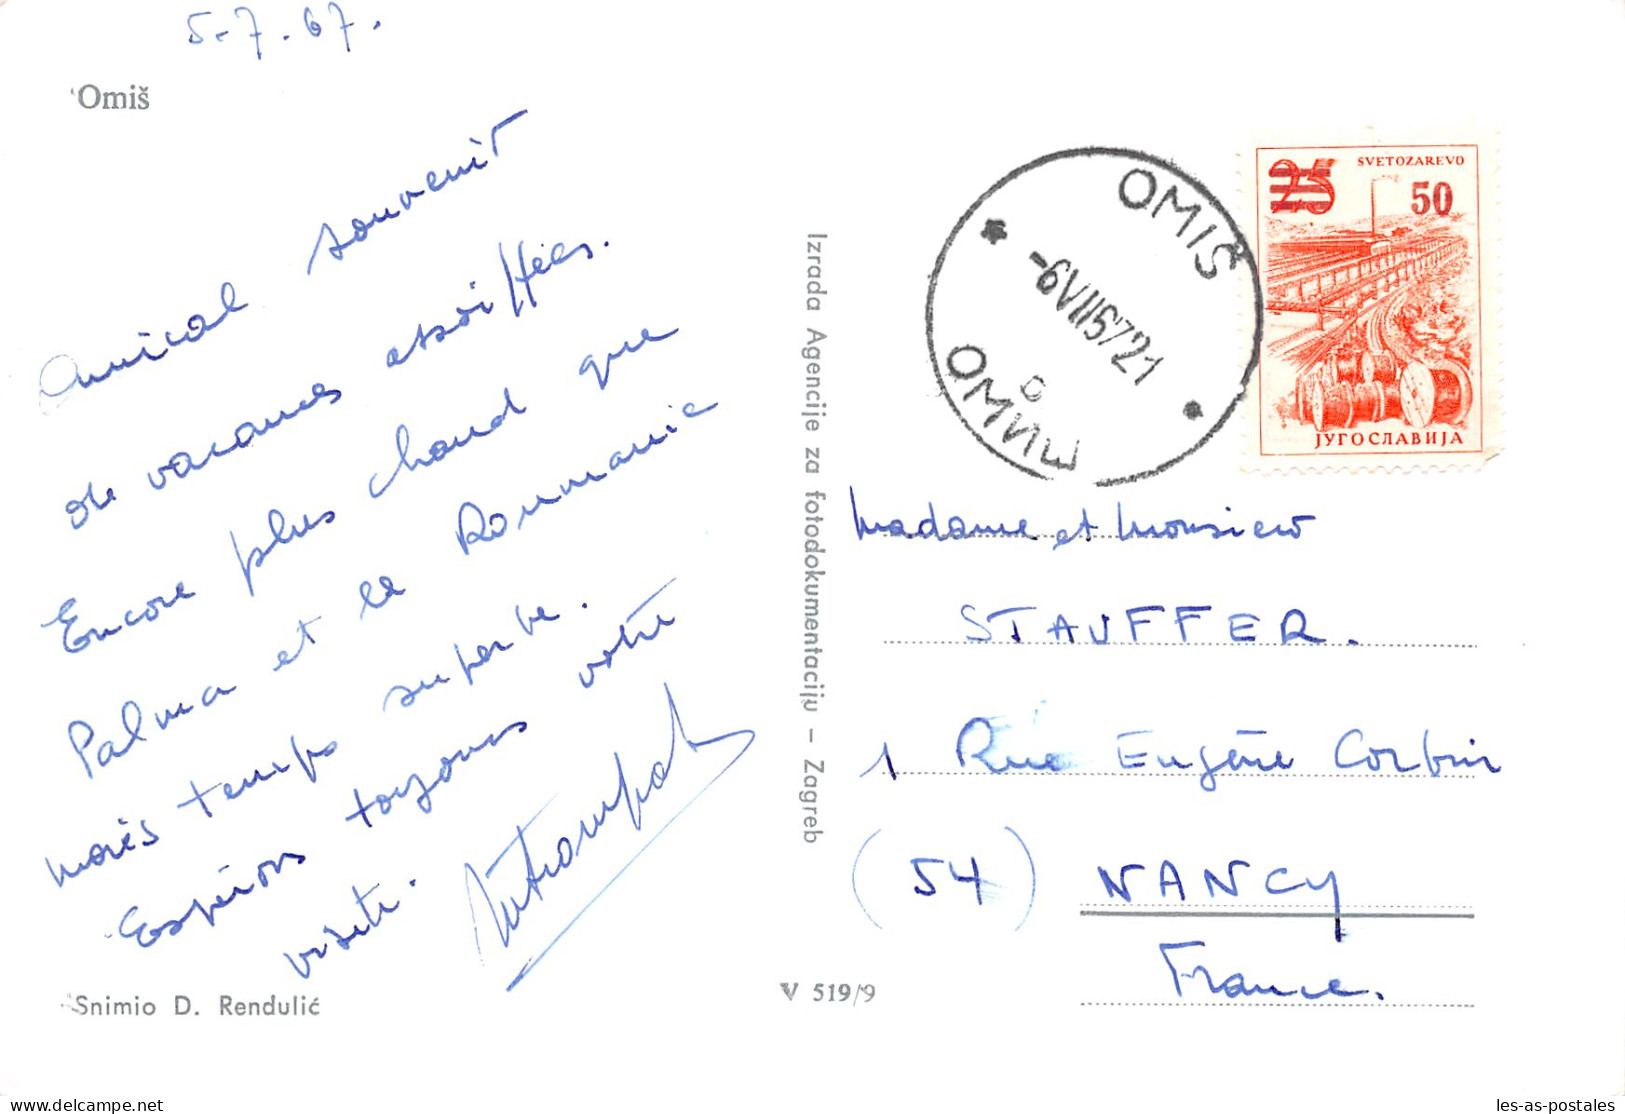 5-7.67.
Omiš
Amical souvenir
de vacances assoiffées.
Encore plus chaud que
Palma et la Roumanie
mais temps superbe.
Espérons toujours votre
visite.
Snimio D. Rendulić
Izrada Agencije za fotodokumentaciju – Zagreb
V 519/9
OMIŠ
-6VII6721
ОМИШ
25 SVETOZAREVO
50
ЈУГОСЛАВИЈА
Madame et Monsieur
STAUFFER.
1 Rue Eugène Corbin
(54) NANCY
France.
delcampe.net
les-as-postales